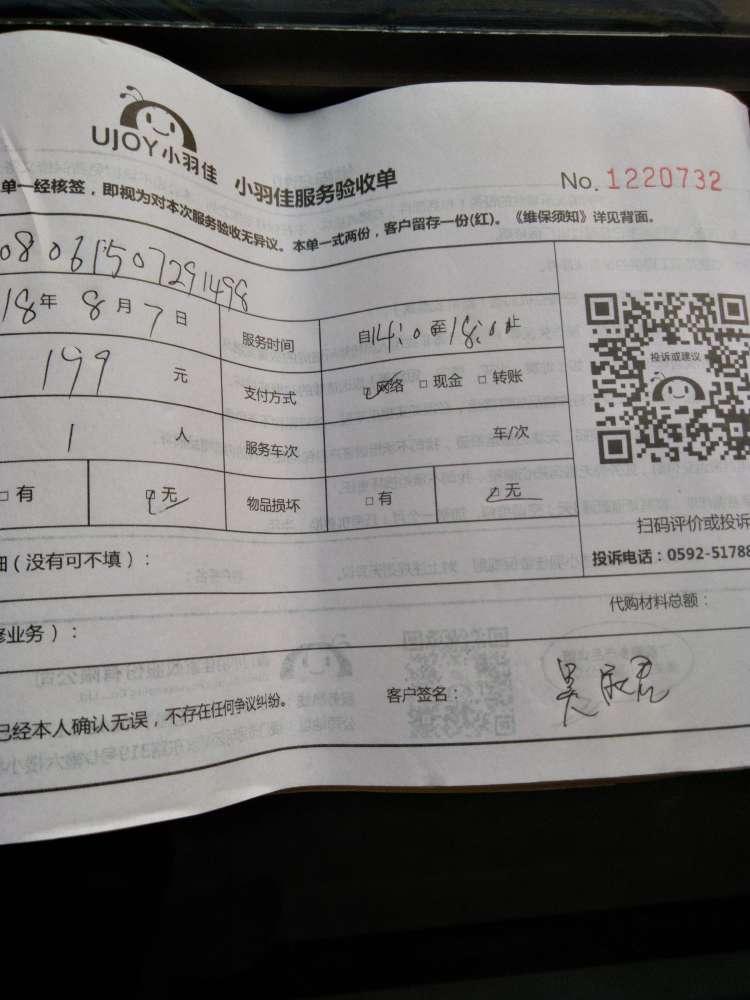 UJOY小羽佳 小羽佳服务验收单
No. 1220732
单一经核签，即视为对本次服务验收无异议。本单一式两份，客户留存一份(红)。《维保须知》详见背面。
08061507291498
18年 8月 7日 服务时间 自14:0至18:0止
199 元 支付方式 ☑网络 □现金 □转账
投诉或建议
1 人 服务车次 车/次
□有 ☑无 物品损坏 □有 ☑无
扫码评价或投诉
细(没有可不填)：
投诉电话：0592-51788
代购材料总额：
修业务)：
已经本人确认无误，不存在任何争议纠纷。 客户签名：